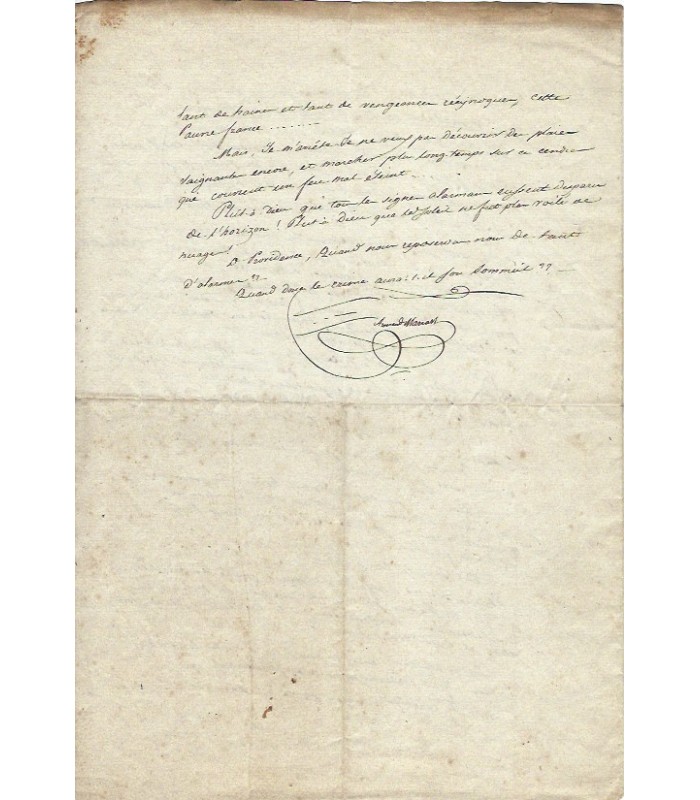 tant de haines et tant de vengeances réciproques, cette
Pauvre france .......
Mais, Je m'arrête Je ne veux pas découvrir des plaies
saignantes encore, et marcher plus long-temps sur ces cendres
qui couvrent un feu mal éteint....
Plut à Dieu que tous les signes alarmans eussent disparu
de l'horizon ! Plut à Dieu que le soleil ne fut plus voilé de
nuages !
O Providence, Quand nous reposerons nous de tant
d'alarmes ??
Quand donc le crime aura-t-il son sommeil ??
Armand